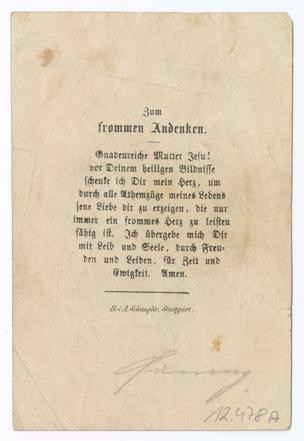 Zum
frommen Andenken.
Gnadenreiche Mutter Jesu!
vor Deinem heiligen Bildnisse
schenke ich Dir mein Herz, um
durch alle Athemzüge meines Lebens
jene Liebe dir zu erzeigen, die nur
immer ein frommes Herz zu leisten
fähig ist. Ich übergebe mich Dir
mit Leib und Seele, durch Freu-
den und Leiden, für Zeit und
Ewigkeit. Amen.
Bei A. Schaufele, Stuttgart.
12.478A